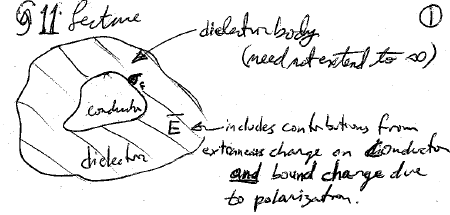 § 11 Lecture
①
dielector body
(need not extend to ∞)
σ_f
conductor
E̅ includes contributions from
extraneous charge on conductor
dielector
and bound charge due
to polarization.